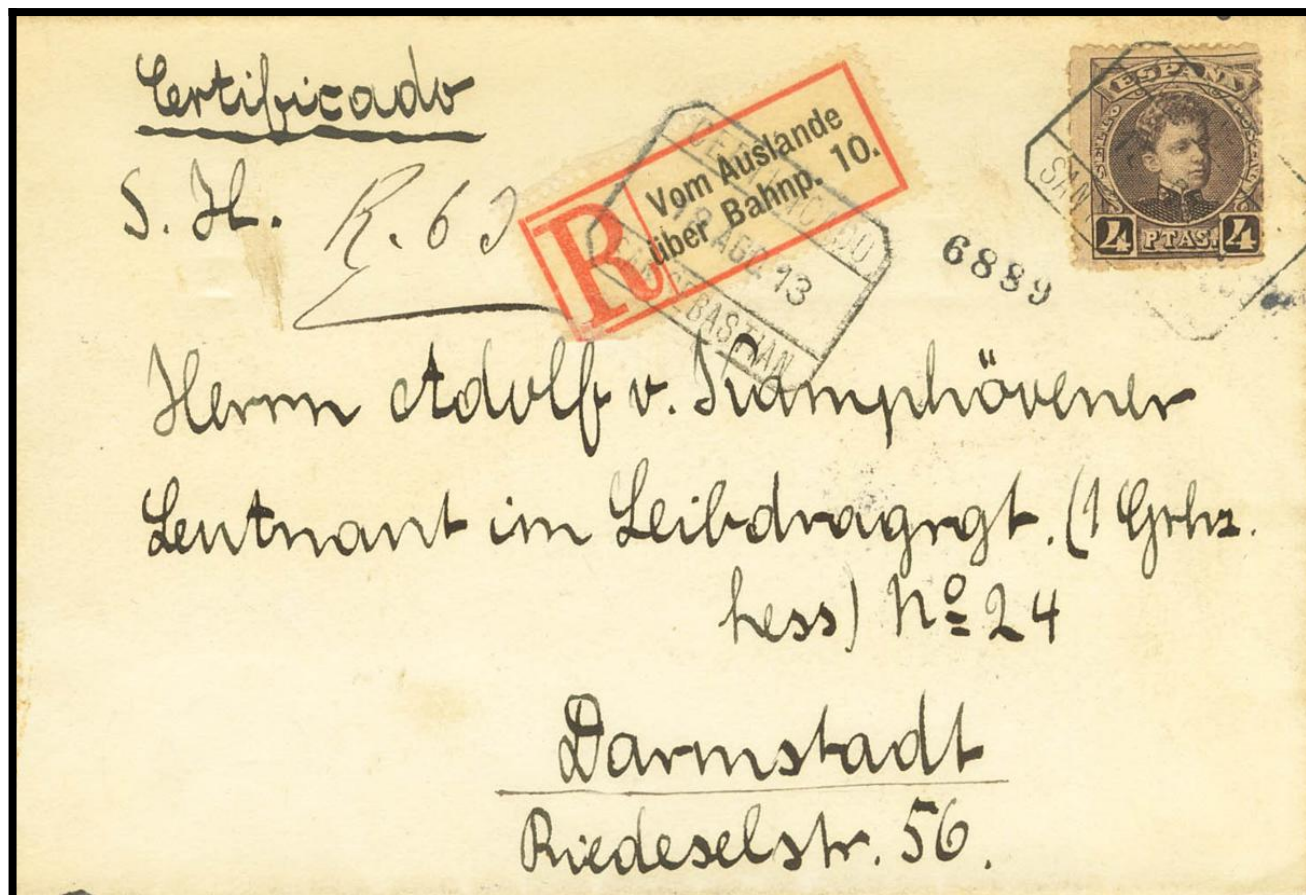 Certificado
S. H.
R. 6
R
Vom Auslande
über Bahnp. 10.
CERTIFICADO
18 AGO 13
SAN SEBASTIAN
6889
ESPAÑA
SELLO
4 PTAS. 4
SAN
Herrn Adolf v. Kamphövener
Leutnant im Leibdragrgt. (1 Grhz.
hess) Nº 24
Darmstadt
Riedeselstr. 56.